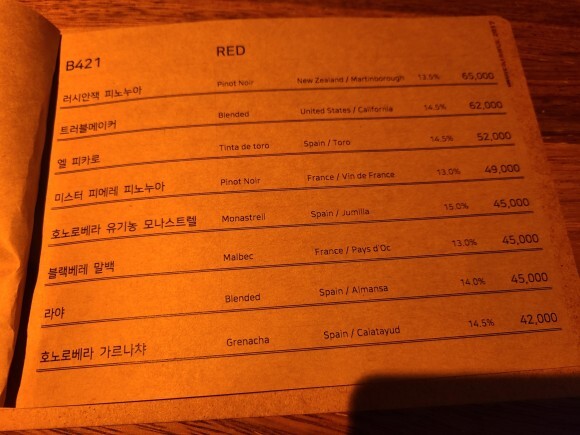 B421 RED
러시안잭 피노누아 Pinot Noir New Zealand / Martinborough 13.5% 65,000
트러블메이커 Blended United States / California 14.5% 62,000
엘 피카로 Tinta de toro Spain / Toro 14.5% 52,000
미스터 피메레 피노누아 Pinot Noir France / Vin de France 13.0% 49,000
호노로베라 유기농 모나스트렐 Monastrell Spain / Jumilla 15.0% 45,000
블랙베레 말백 Malbec France / Pays d'Oc 13.0% 45,000
라야 Blended Spain / Almansa 14.0% 45,000
호노로베라 가르나챠 Grenacha Spain / Calatayud 14.5% 42,000